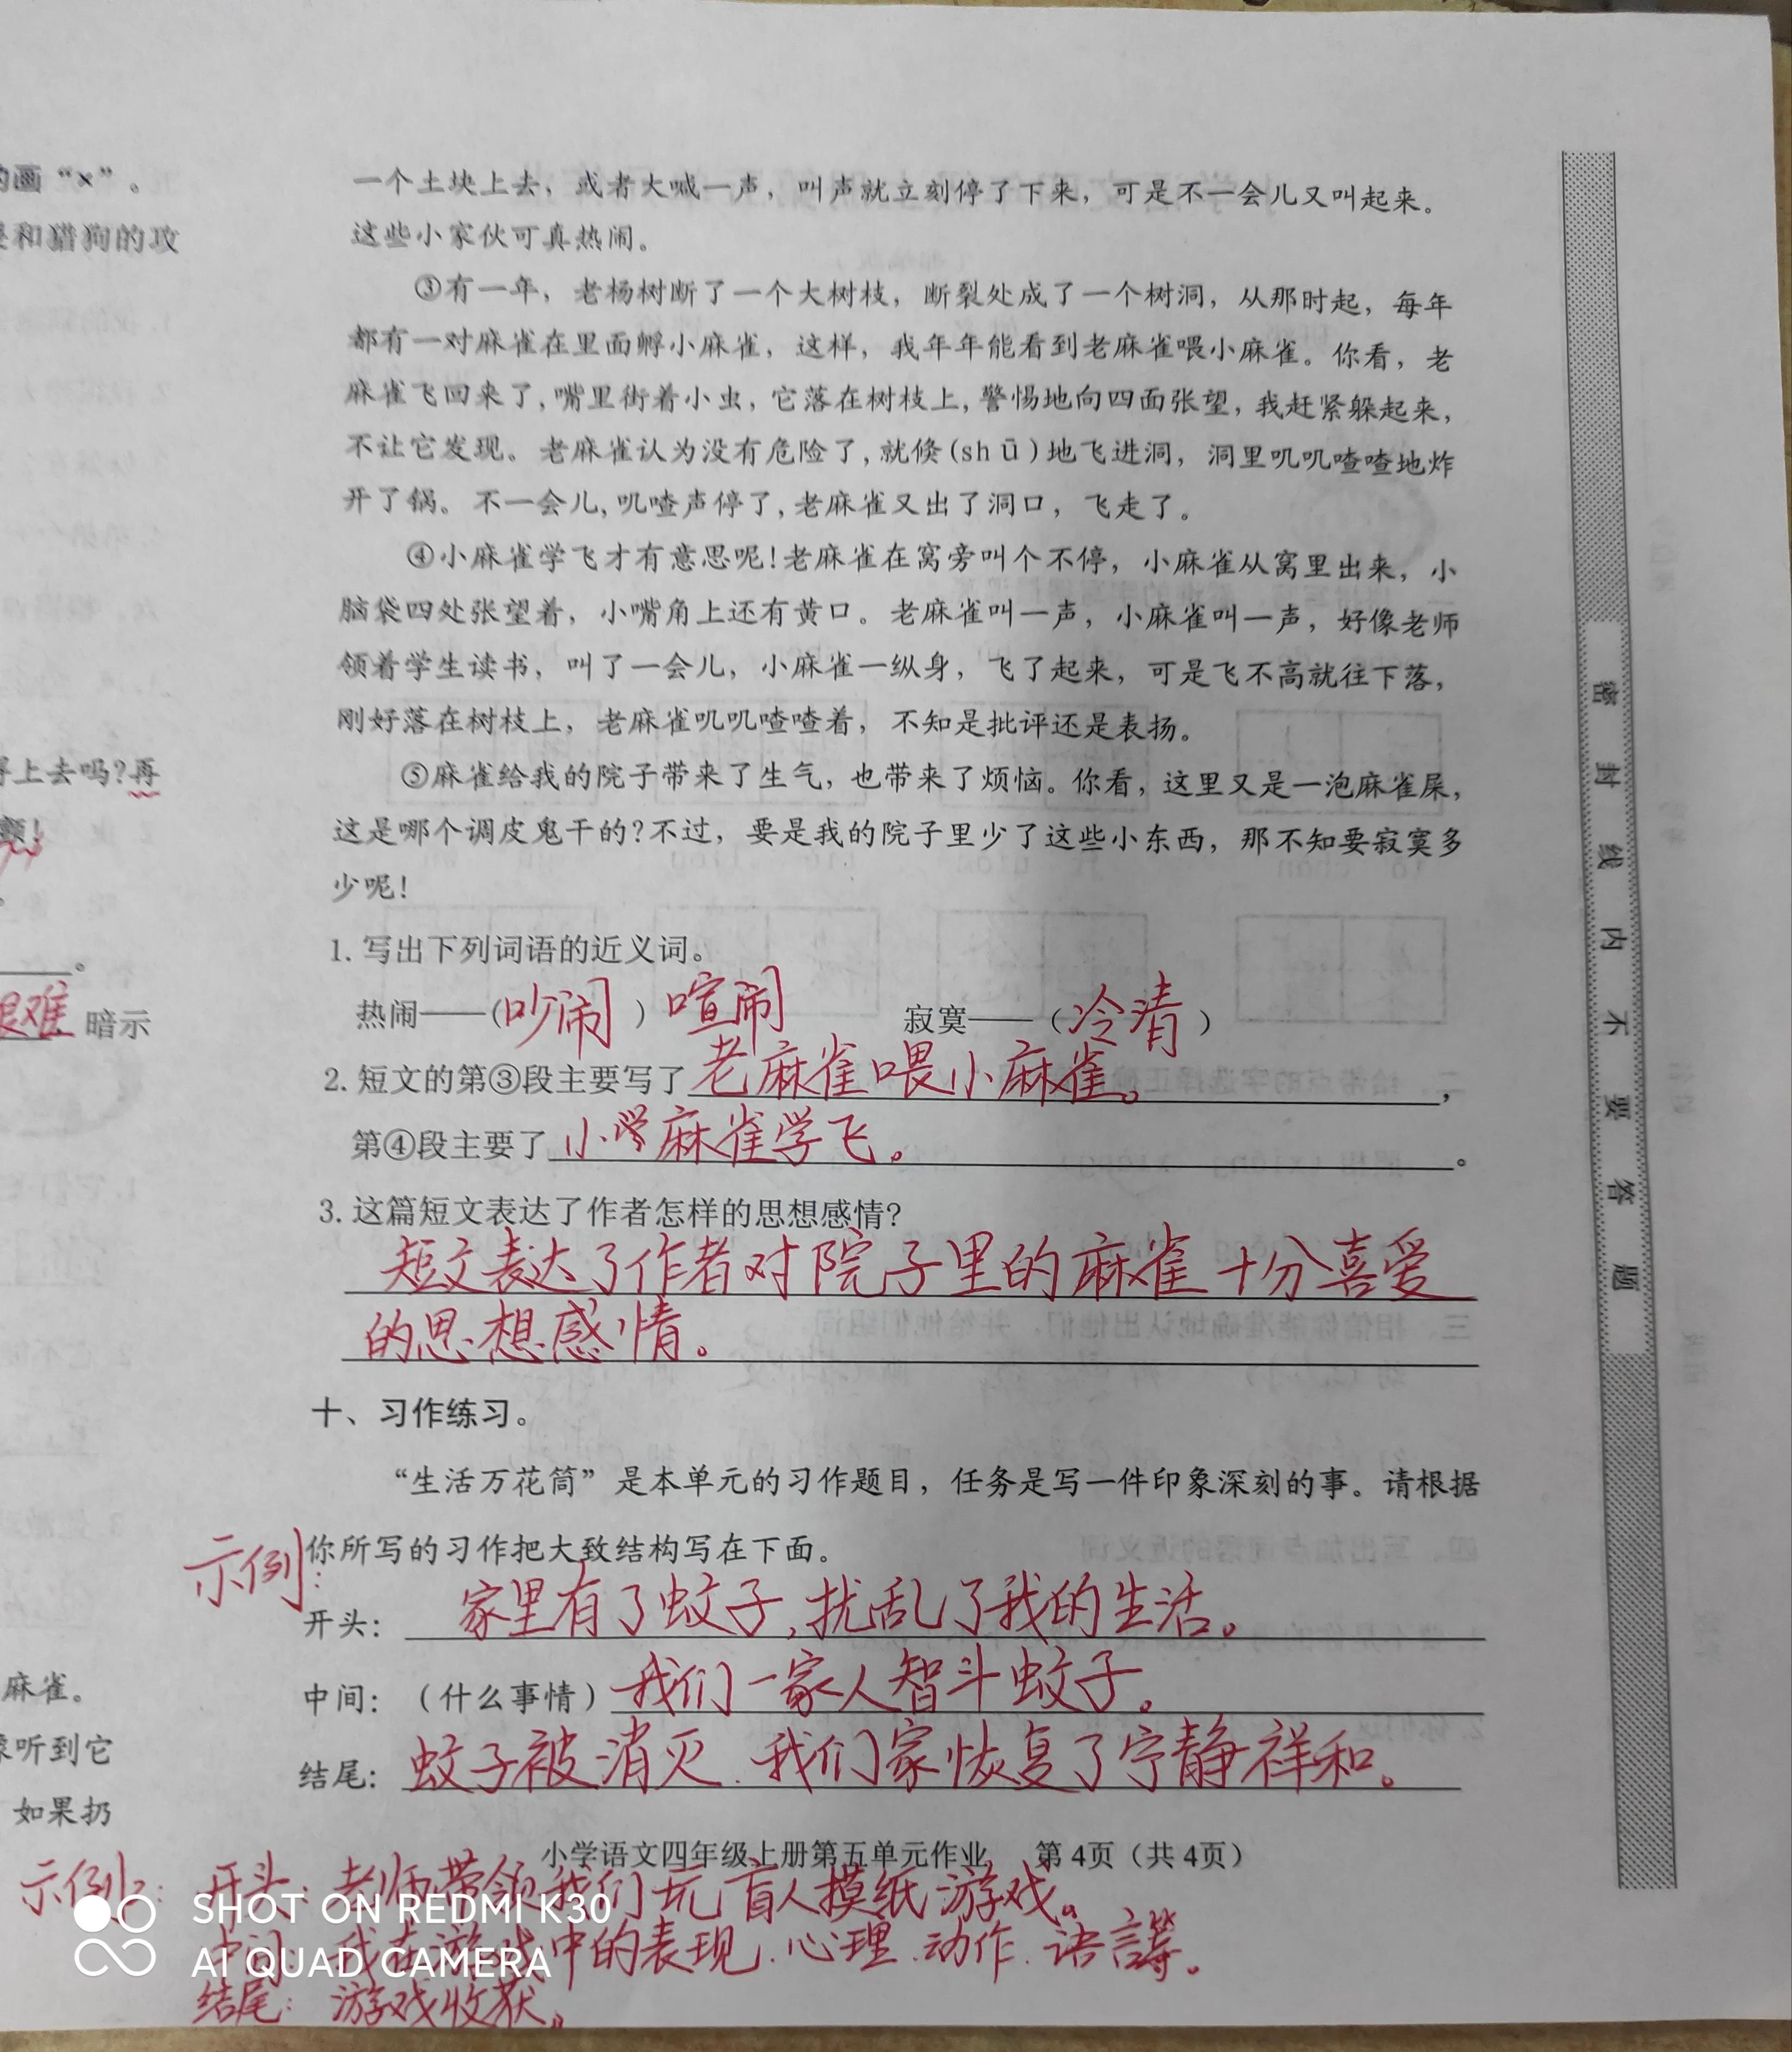 的画“×”。
和猎狗的攻
得上去吗?再
。
艰难 暗示
麻雀。
听到它
如果扔
一个土块上去，或者大喊一声，叫声就立刻停了下来，可是不一会儿又叫起来。
这些小家伙可真热闹。
③有一年，老杨树断了一个大树枝，断裂处成了一个树洞，从那时起，每年
都有一对麻雀在里面孵小麻雀，这样，我年年能看到老麻雀喂小麻雀。你看，老
麻雀飞回来了，嘴里街着小虫，它落在树枝上，警惕地向四面张望，我赶紧躲起来，
不让它发现。老麻雀认为没有危险了，就倏(shū)地飞进洞，洞里叽叽喳喳地炸
开了锅。不一会儿，叽喳声停了，老麻雀又出了洞口，飞走了。
④小麻雀学飞才有意思呢！老麻雀在窝旁叫个不停，小麻雀从窝里出来，小
脑袋四处张望着，小嘴角上还有黄口。老麻雀叫一声，小麻雀叫一声，好像老师
领着学生读书，叫了一会儿，小麻雀一纵身，飞了起来，可是飞不高就往下落，
刚好落在树枝上，老麻雀叽叽喳喳着，不知是批评还是表扬。
⑤麻雀给我的院子带来了生气，也带来了烦恼。你看，这里又是一泡麻雀屎，
这是哪个调皮鬼干的?不过，要是我的院子里少了这些小东西，那不知要寂寞多
少呢！
1. 写出下列词语的近义词。
热闹——(吵闹) 喧闹 寂寞——(冷清)
2. 短文的第③段主要写了老麻雀喂小麻雀。，
第④段主要了小麻雀学飞。。
3. 这篇短文表达了作者怎样的思想感情?
短文表达了作者对院子里的麻雀十分喜爱
的思想感情。
十、习作练习。
“生活万花筒”是本单元的习作题目，任务是写一件印象深刻的事。请根据
你所写的习作把大致结构写在下面。
示例:
开头：家里有了蚊子，扰乱了我的生活。
中间：（什么事情）我们一家人智斗蚊子。
结尾：蚊子被消灭、我们家恢复了宁静祥和。
小学语文四年级上册第五单元作业 第4页（共4页）
示例2: 开头：老师带领我们玩盲人摸纸游戏。
中间：我在游戏中的表现、心理、动作、语言等。
结尾：游戏收获。
SHOT ON REDMI K30
AI QUAD CAMERA
密封线内不要答题